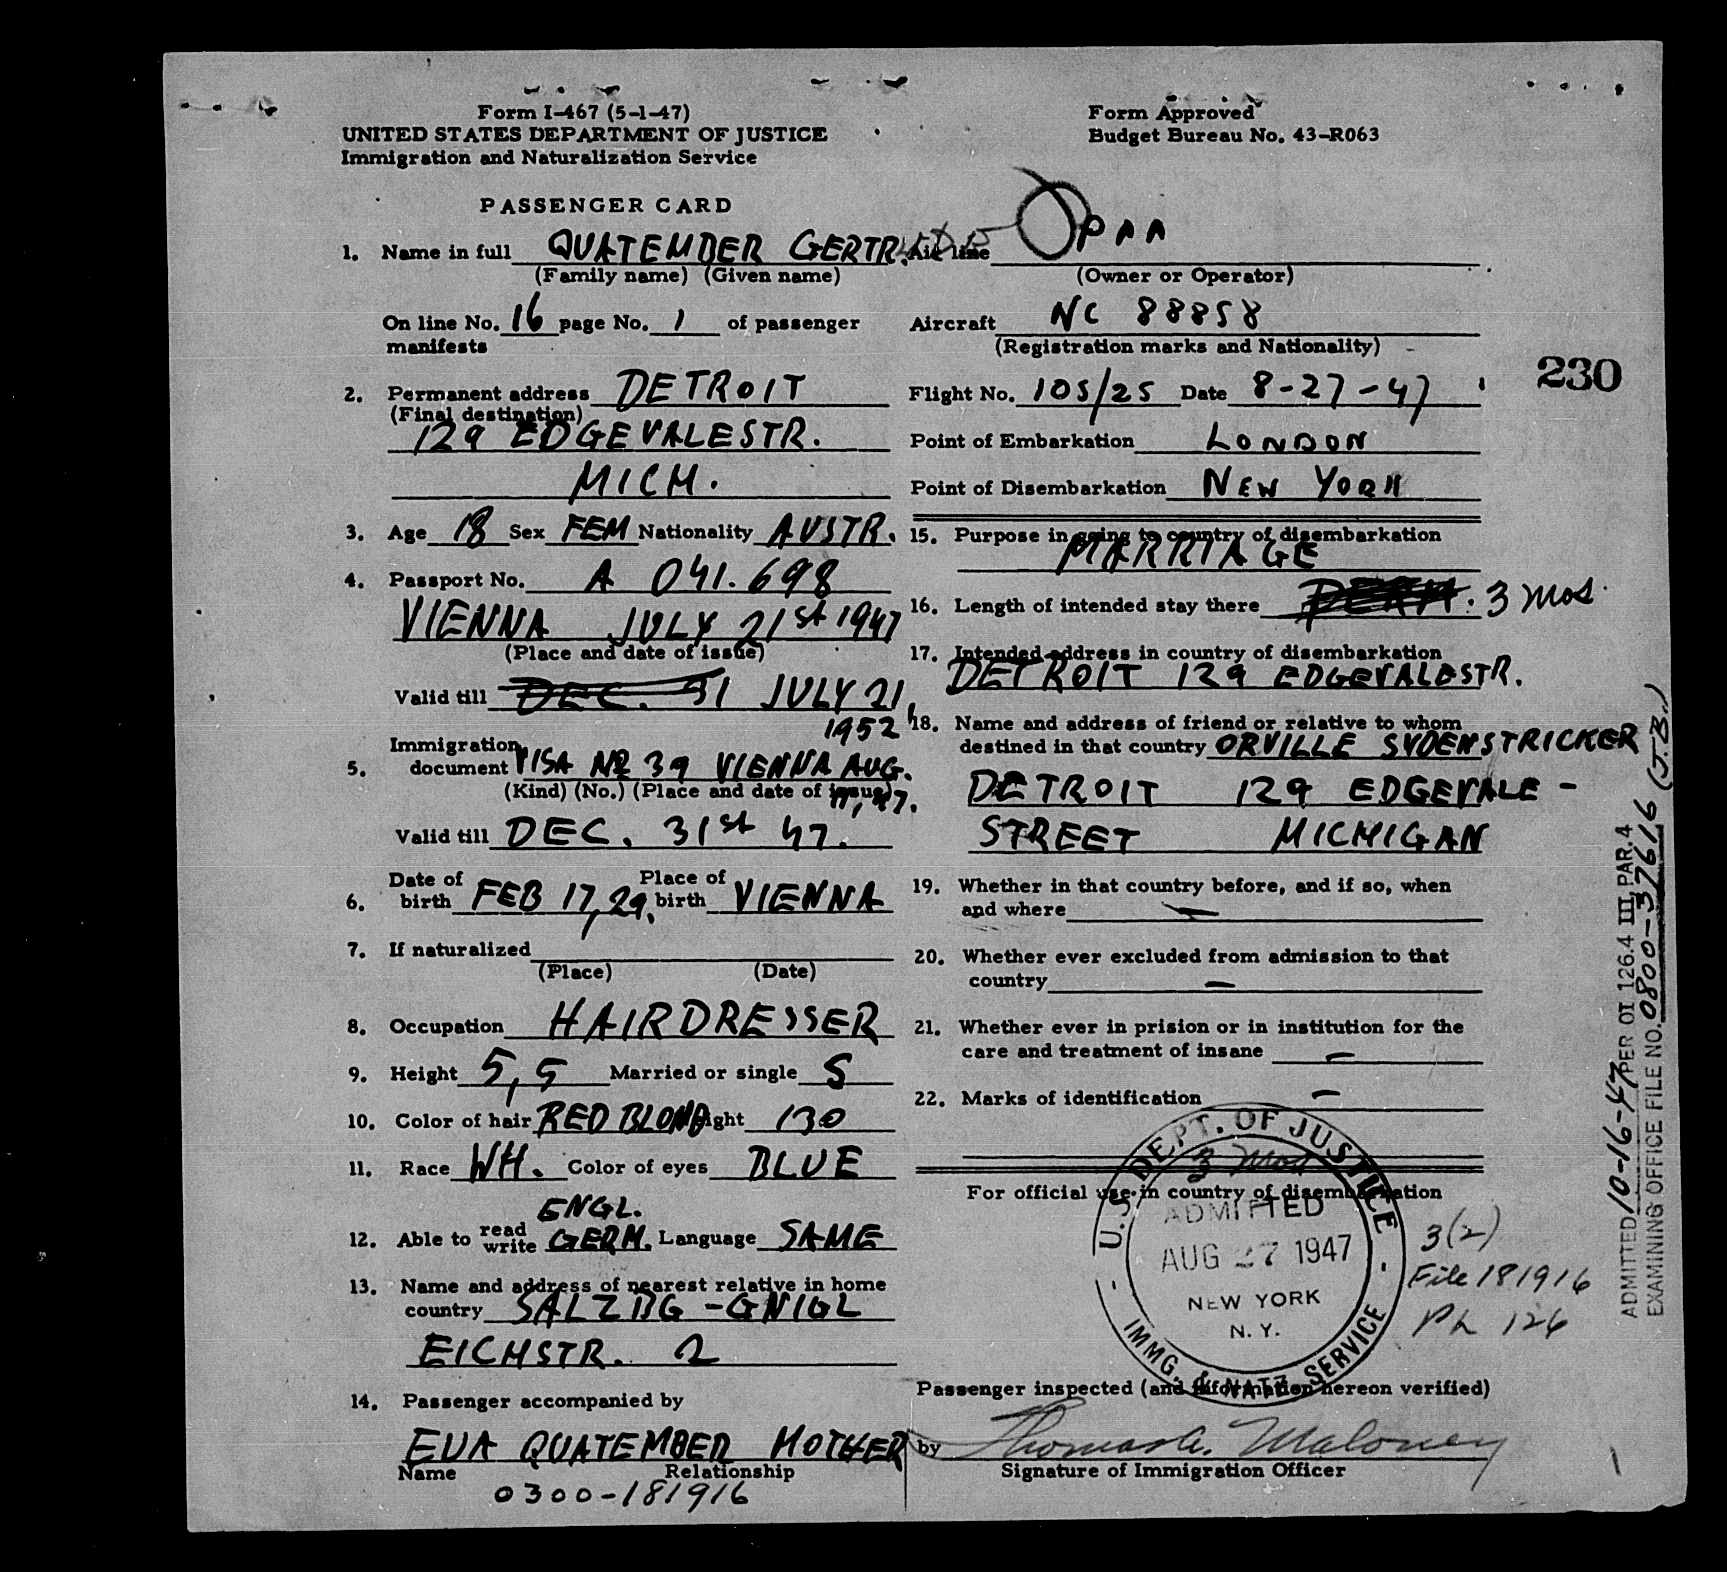 Form I-467 (5-1-47)
UNITED STATES DEPARTMENT OF JUSTICE
Immigration and Naturalization Service
Form Approved
Budget Bureau No. 43-R063
PASSENGER CARD
1. Name in full QUATEMBER GERTR.
(Family name) (Given name)
On line No. 16 page No. 1 of passenger
manifests
2. Permanent address DETROIT
(Final destination)
129 EDGEVALESTR.
MICH.
3. Age 18 Sex FEM Nationality AUSTR.
4. Passport No. A 041.698
VIENNA JULY 21st 1947
(Place and date of issue)
Valid till DEC. 31 JULY 21,
1952
Immigration
5. document VISA No 39 VIENNA AUG.
(Kind) (No.) (Place and date of issue)
Valid till DEC. 31st 47.
Date of Place of
6. birth FEB 17, 29. birth VIENNA
7. If naturalized
(Place) (Date)
8. Occupation HAIRDRESSER
9. Height 5,5 Married or single S
10. Color of hair RED BLOND Weight 130
11. Race WH. Color of eyes BLUE
ENGL.
12. Able to read write GERM. Language SAME
13. Name and address of nearest relative in home
country SALZBG-GNIGL
EICHSTR. 2
14. Passenger accompanied by
EVA QUATEMBER MOTHER
Name Relationship
0300-181916
Air line PAA
(Owner or Operator)
Aircraft NC 88858
(Registration marks and Nationality)
Flight No. 105/25 Date 8-27-47
Point of Embarkation LONDON
Point of Disembarkation NEW YORK
15. Purpose in going to country of disembarkation
MARRIAGE
16. Length of intended stay there PERM. 3 mos.
17. Intended address in country of disembarkation
DETROIT 129 EDGEVALESTR.
18. Name and address of friend or relative to whom
destined in that country ORVILLE SYDENSTRICKER
DETROIT 129 EDGEVALE-
STREET MICHIGAN
19. Whether in that country before, and if so, when
and where —
20. Whether ever excluded from admission to that
country —
21. Whether ever in prision or in institution for the
care and treatment of insane —
22. Marks of identification —
For official use in country of disembarkation
U.S. DEPT. OF JUSTICE
3 mos
ADMITTED
AUG 27 1947
NEW YORK
N.Y.
IMMG. & NATZ. SERVICE
3(2)
File 181916
PL 126
Passenger inspected (and information hereon verified)
by Thomas A. Maloney
Signature of Immigration Officer
230
ADMITTED 10-16-47 PER OI 126.4 III PAR. 4
EXAMINING OFFICE FILE NO. 0800-37616 (J.B.)